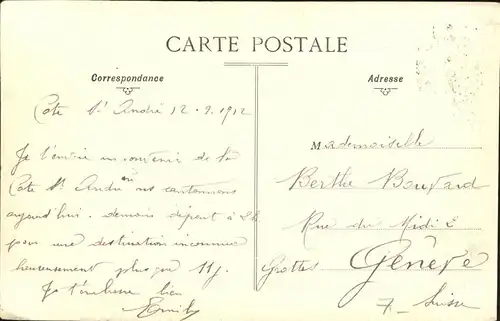 CARTE POSTALE
Correspondance
Adresse
Cote St André 12.9.1912
Je t'envoie un souvenir de la
Cote St André où ns cantonnons
aujourd'hui. demain départ à 2h
pour une destination inconnue
heureusement plus que 11j.
Je t'embrasse bien
Emile
Mademoiselle
Berthe Bouvard
Rue du Midi 2
Grottes Genève
7 - Suisse